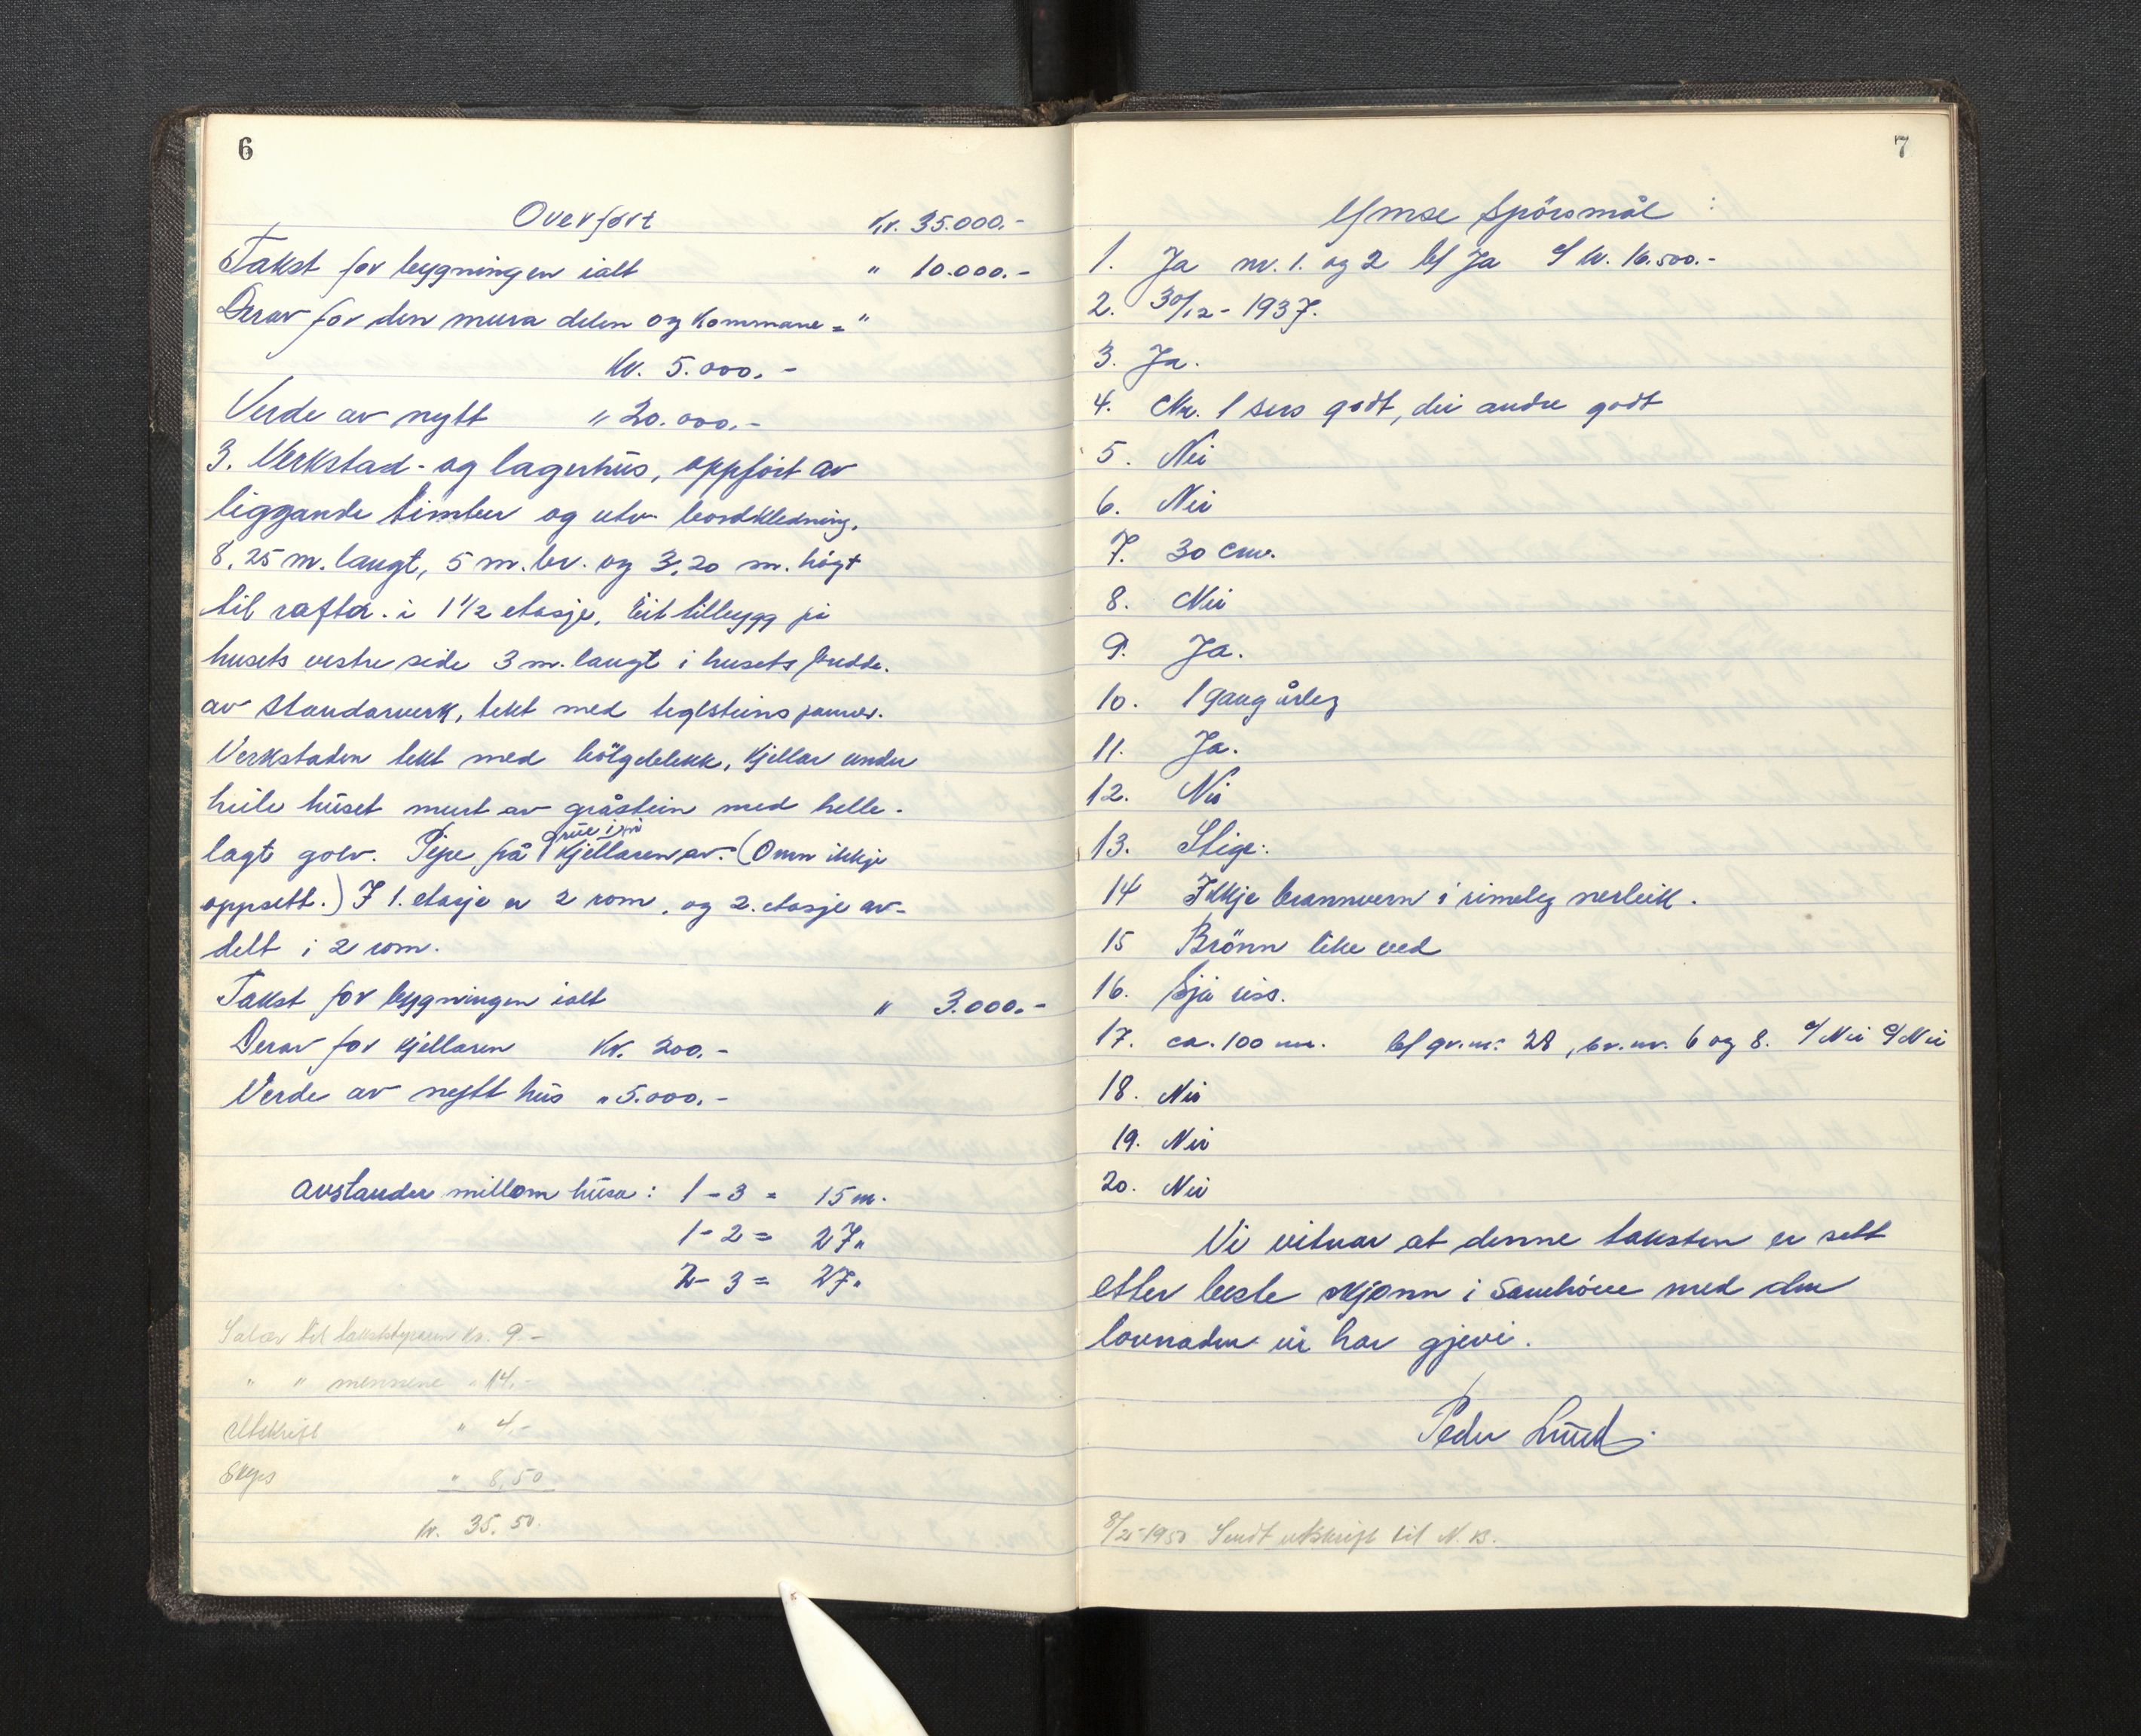 6
Overført Kr. 35.000.-
Takst for bygningen ialt " 10.000.-
Derav for den mura delen og kommane = "
Kr. 5.000.-
Verde av nytt " 20.000.-
3. Verkstad- og lagerhus, oppført av
liggande timber og utv. bordkledning.
8.25 m. langt, 5 m. br. og 3.20 m. høgt
til raftar. i 1 1/2 etasje. Eit tilbygg på
husets vestre side 3 m. langt i husets bredde.
av standarverk, tekt med teglsteinspanner.
Verkstaden tekt med bölgeblekk, kjellar under
heile huset murt av gråstein med helle-
grue i
lagt golv. Pipe frå kjellaren av. (Omn ikkje
oppsett.) I 1. etasje er 2 rom, og 2. etasje av-
delt i 2 rom.
Takst for bygningen ialt " 3.000.-
Derav for kjellaren Kr. 200.-
Verde av nytt hus " 5.000.-
Avstander millom husa: 1 - 3 = 15 m.
1 - 2 = 27 "
2 - 3 = 27 "
Salær til takststyraren kr. 9.-
" " mennene " 14.-
Utskrift " 4.-
Skyss " 8,50
kr. 35.50.
7
Ymse spörsmål :
1. Ja nr. 1. og 2 b/ Ja c/ kr. 16.500.-
2. 30/12 - 1937.
3. Ja.
4. Nr. 1 sers godt, dei andre godt
5. Nei
6. Nei
7. 30 cm.
8. Nei
9. Ja.
10. 1 gang årleg
11. Ja.
12. Nei
13. Stige.
14 Ikkje brannvern i rimeleg nerleik.
15 Brönn like ved
16. Sjå riss.
17. ca. 100 m. b/ gr.nr. 28, br.nr. 6 og 8. c/ Nei d/ Nei
18. Nei
19. Nei
20. Nei
Vi vitnar at denne taksten er sett
etter beste skjønn i samhöve med den
lovnaden vi har gjevi.
Peder Lund
8/2-1950 Sendt utskrift til N. B.